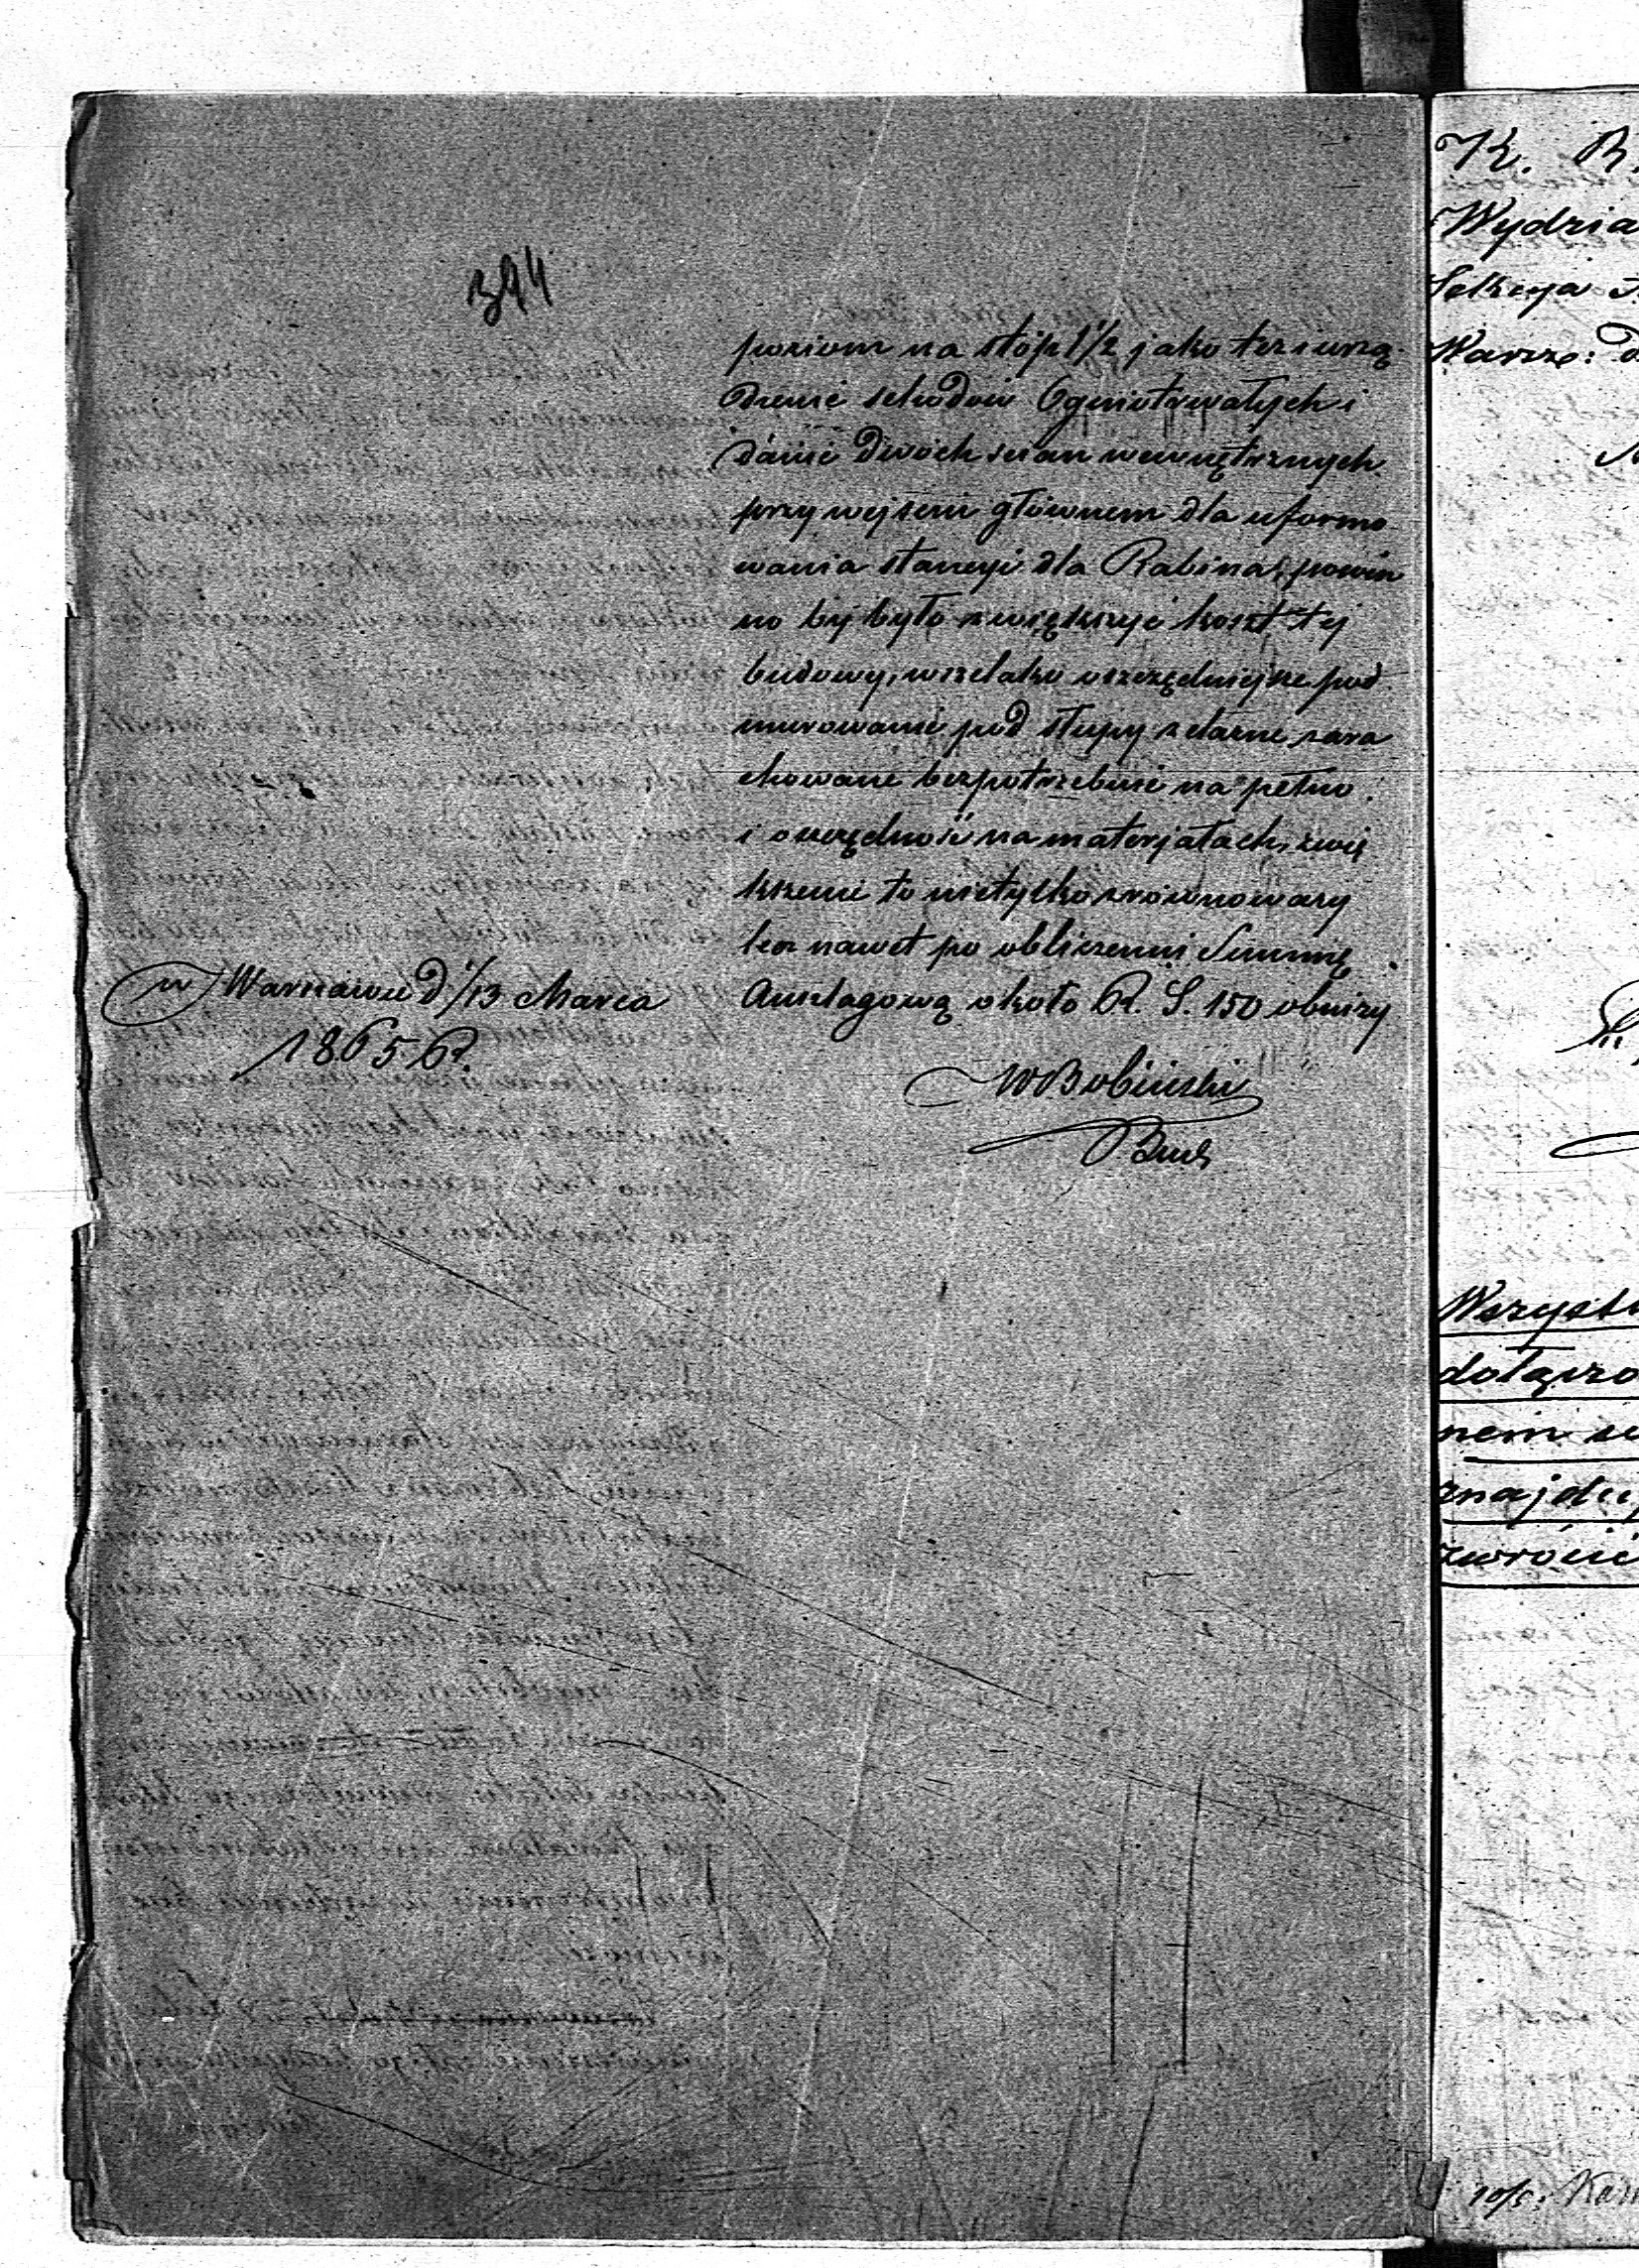 394
poziom na stóp 1 1/2 jako też i urzą
dzenie schodów Ogniotrwałych i
danie dwóch ścian wewnętrznych
przy wejściu głównem dla uformo
wania stancyi dla Rabina, powin
no by było zwiększyć koszt tej
budowy, wszelako oszczędniejsze pod
murowanie pod słupy żelazne zara
chowane bezpotrzebnie na pełno
i oszczędność na materjałach, zwię
kszenie to nietylko zrównoważy
lecz nawet po obliczeniu Summę
Anszlagową około R. S. 150 obniży
w Warszawie d 1/13 Marca
1865 R.
WBobiński
K. R.
Wydzia
Sekcya
Warsz: d
Wszystk
dołączo
nem
znajduj
zwrócić